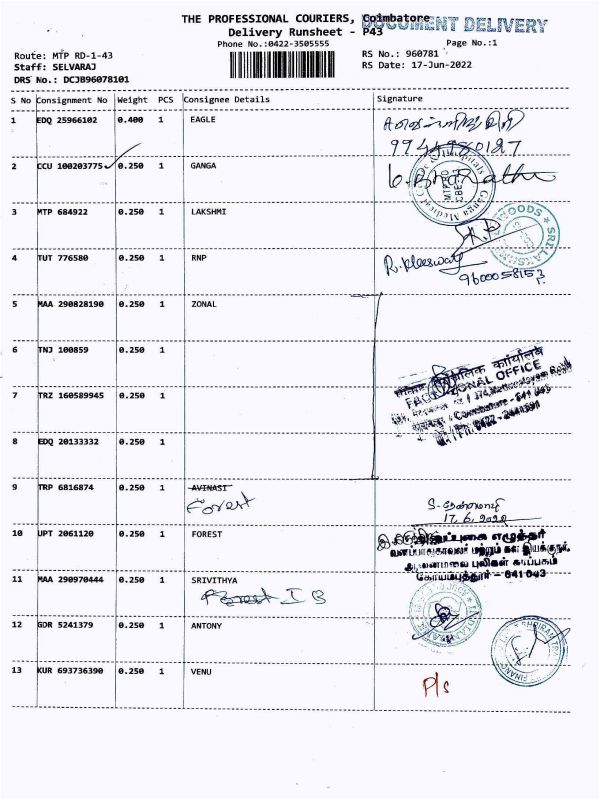 THE PROFESSIONAL COURIERS, Coimbatore
DOCUMENT DELIVERY
Delivery Runsheet - P43
Phone No.:0422-3505555
Page No.:1
Route: MTP RD-1-43
RS No.: 960781
Staff: SELVARAJ
RS Date: 17-Jun-2022
DRS No.: DCJB96078101
S No Consignment No Weight PCS Consignee Details Signature
1 EDQ 25966102 0.400 1 EAGLE
2 CCU 100203775 0.250 1 GANGA
3 MTP 684922 0.250 1 LAKSHMI
4 TUT 776580 0.250 1 RNP
9600058153
5 MAA 290828190 0.250 1 ZONAL
6 TNJ 100859 0.250 1
कार्यालय
ZONAL OFFICE
7 TRZ 160589945 0.250 1
8 EDQ 20133332 0.250 1
9 TRP 6816874 0.250 1 AVINASI
Forest
17.6.2022
10 UPT 2061120 0.250 1 FOREST
எழுத்தர்
வனப்பாதுகாவலர் மற்றும் கள இயக்குநர்,
ஆனைமலை புலிகள் காப்பகம்
கோயமபுத்தூர் - 641 043
11 MAA 290970444 0.250 1 SRIVITHYA
Forest I B
12 GDR 5241379 0.250 1 ANTONY
13 KUR 693736390 0.250 1 VENU
P/s